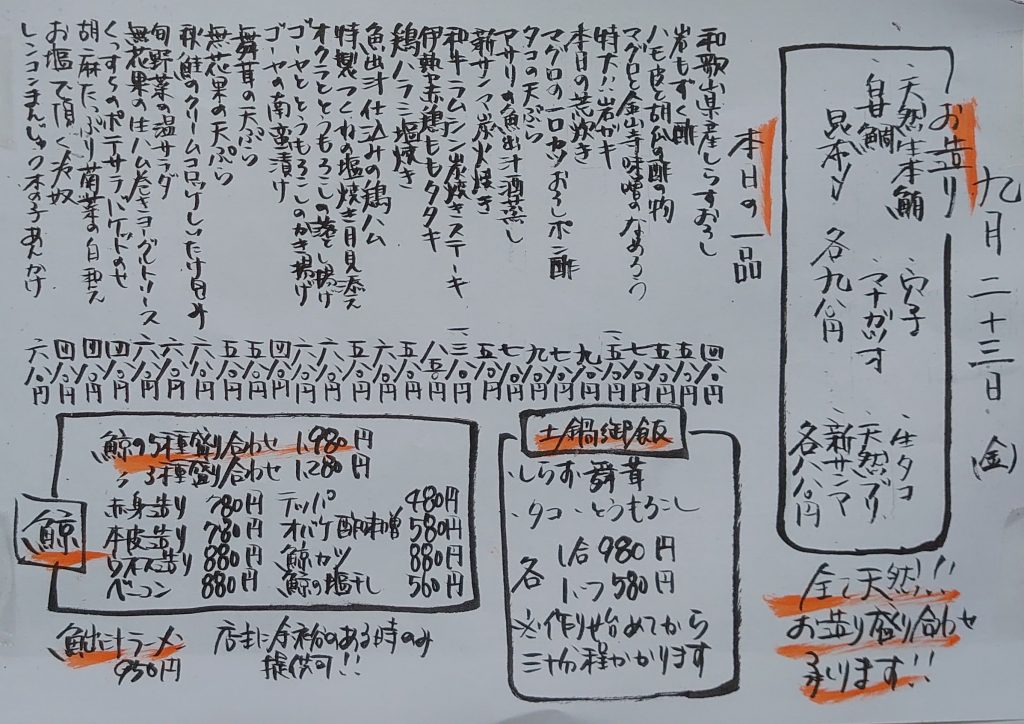 九月二十三日(金)
お造り
天然生本鮪
甘鯛
昆布〆
各九八〇円
穴子
マナガツオ
生タコ
天然ブリ
新サンマ
各八八〇円
全て天然!!
お造り盛り合わせ
承ります!!
本日の一品
和歌山県産しらすおろし 四八〇円
岩もずく酢 五八〇円
ハモ皮と胡瓜の酢の物
マグロと金山寺味噌のなめろう
特大!!岩ガキ
本日の荒炊き
マグロの一口カツおろしポン酢
タコの天ぷら
アサリの魚出汁酒蒸し
新サンマ炭火焼き
和牛ラムシン炭焼きステーキ
伊勢赤鶏ももタタキ
鶏ハラミ塩焼き
魚出汁仕込みの鶏ハム
特製つくねの塩焼き月見添え
オクラととうもろこしの落とし揚げ
ゴーヤととうもろこしのかき揚げ
ゴーヤの南蛮漬け
舞茸の天ぷら
無花果の天ぷら
秋鮭のクリームコロッケしいたけ包め
旬野菜の温サラダ
無花果の生ハム巻きヨーグルトソース
くんずりのポテサラバケットのせ
胡麻たっぷり菊菜の白和え 四八〇円
お塩で頂く冷奴 四八〇円
レンコンまんじゅう木の子あんかけ 六八〇円
土鍋御飯
・しらす・舞茸
・タコ・とうもろこし
各 1合 980円
1/2つ 580円
※作り始めてから
三十分程かかります
鯨
鯨の5種盛り合わせ 1.980円
〃 3種盛り合わせ 1.280円
赤身造り 780円 テッパ 480円
本皮造り 780円 オバケ酢味噌 580円
ウネス造り 880円 鯨カツ 880円
ベーコン 880円 鯨の塩干し 560円
魚出汁ラーメン 950円
店主に余裕のある時のみ
提供可!!